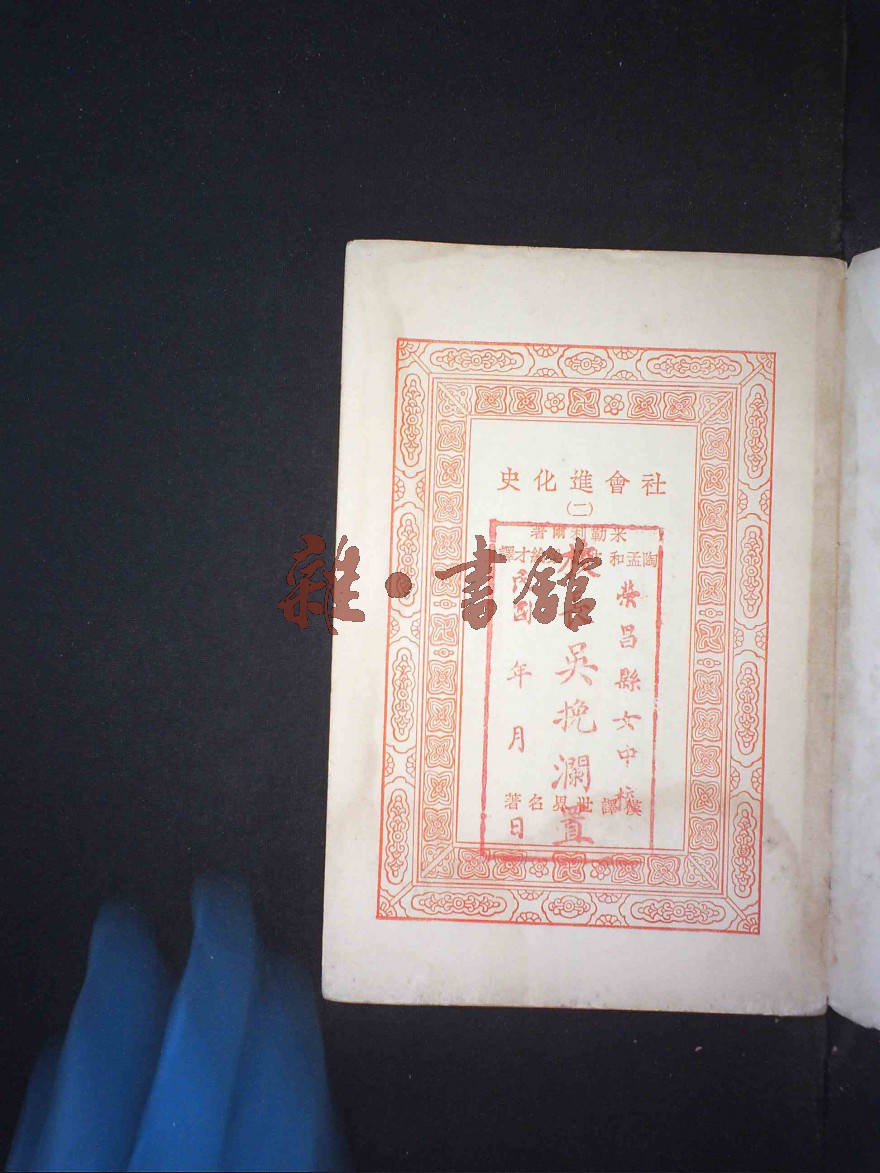 社會進化史
(二)
米勒利爾著
陶孟和
才譯
漢譯世界名著
榮昌縣女中校
校長吳挽瀾置
民國 年 月 日
雜·書館